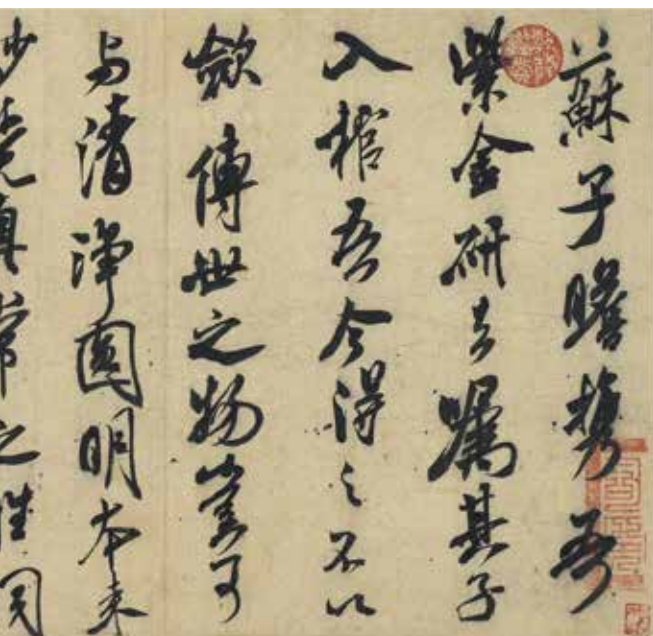 蘇子瞻携吾
紫金研去嘱其子
入棺吾今得之不以
歛傳世之物豈可
与清淨圓明本来
妙覺真常之性同